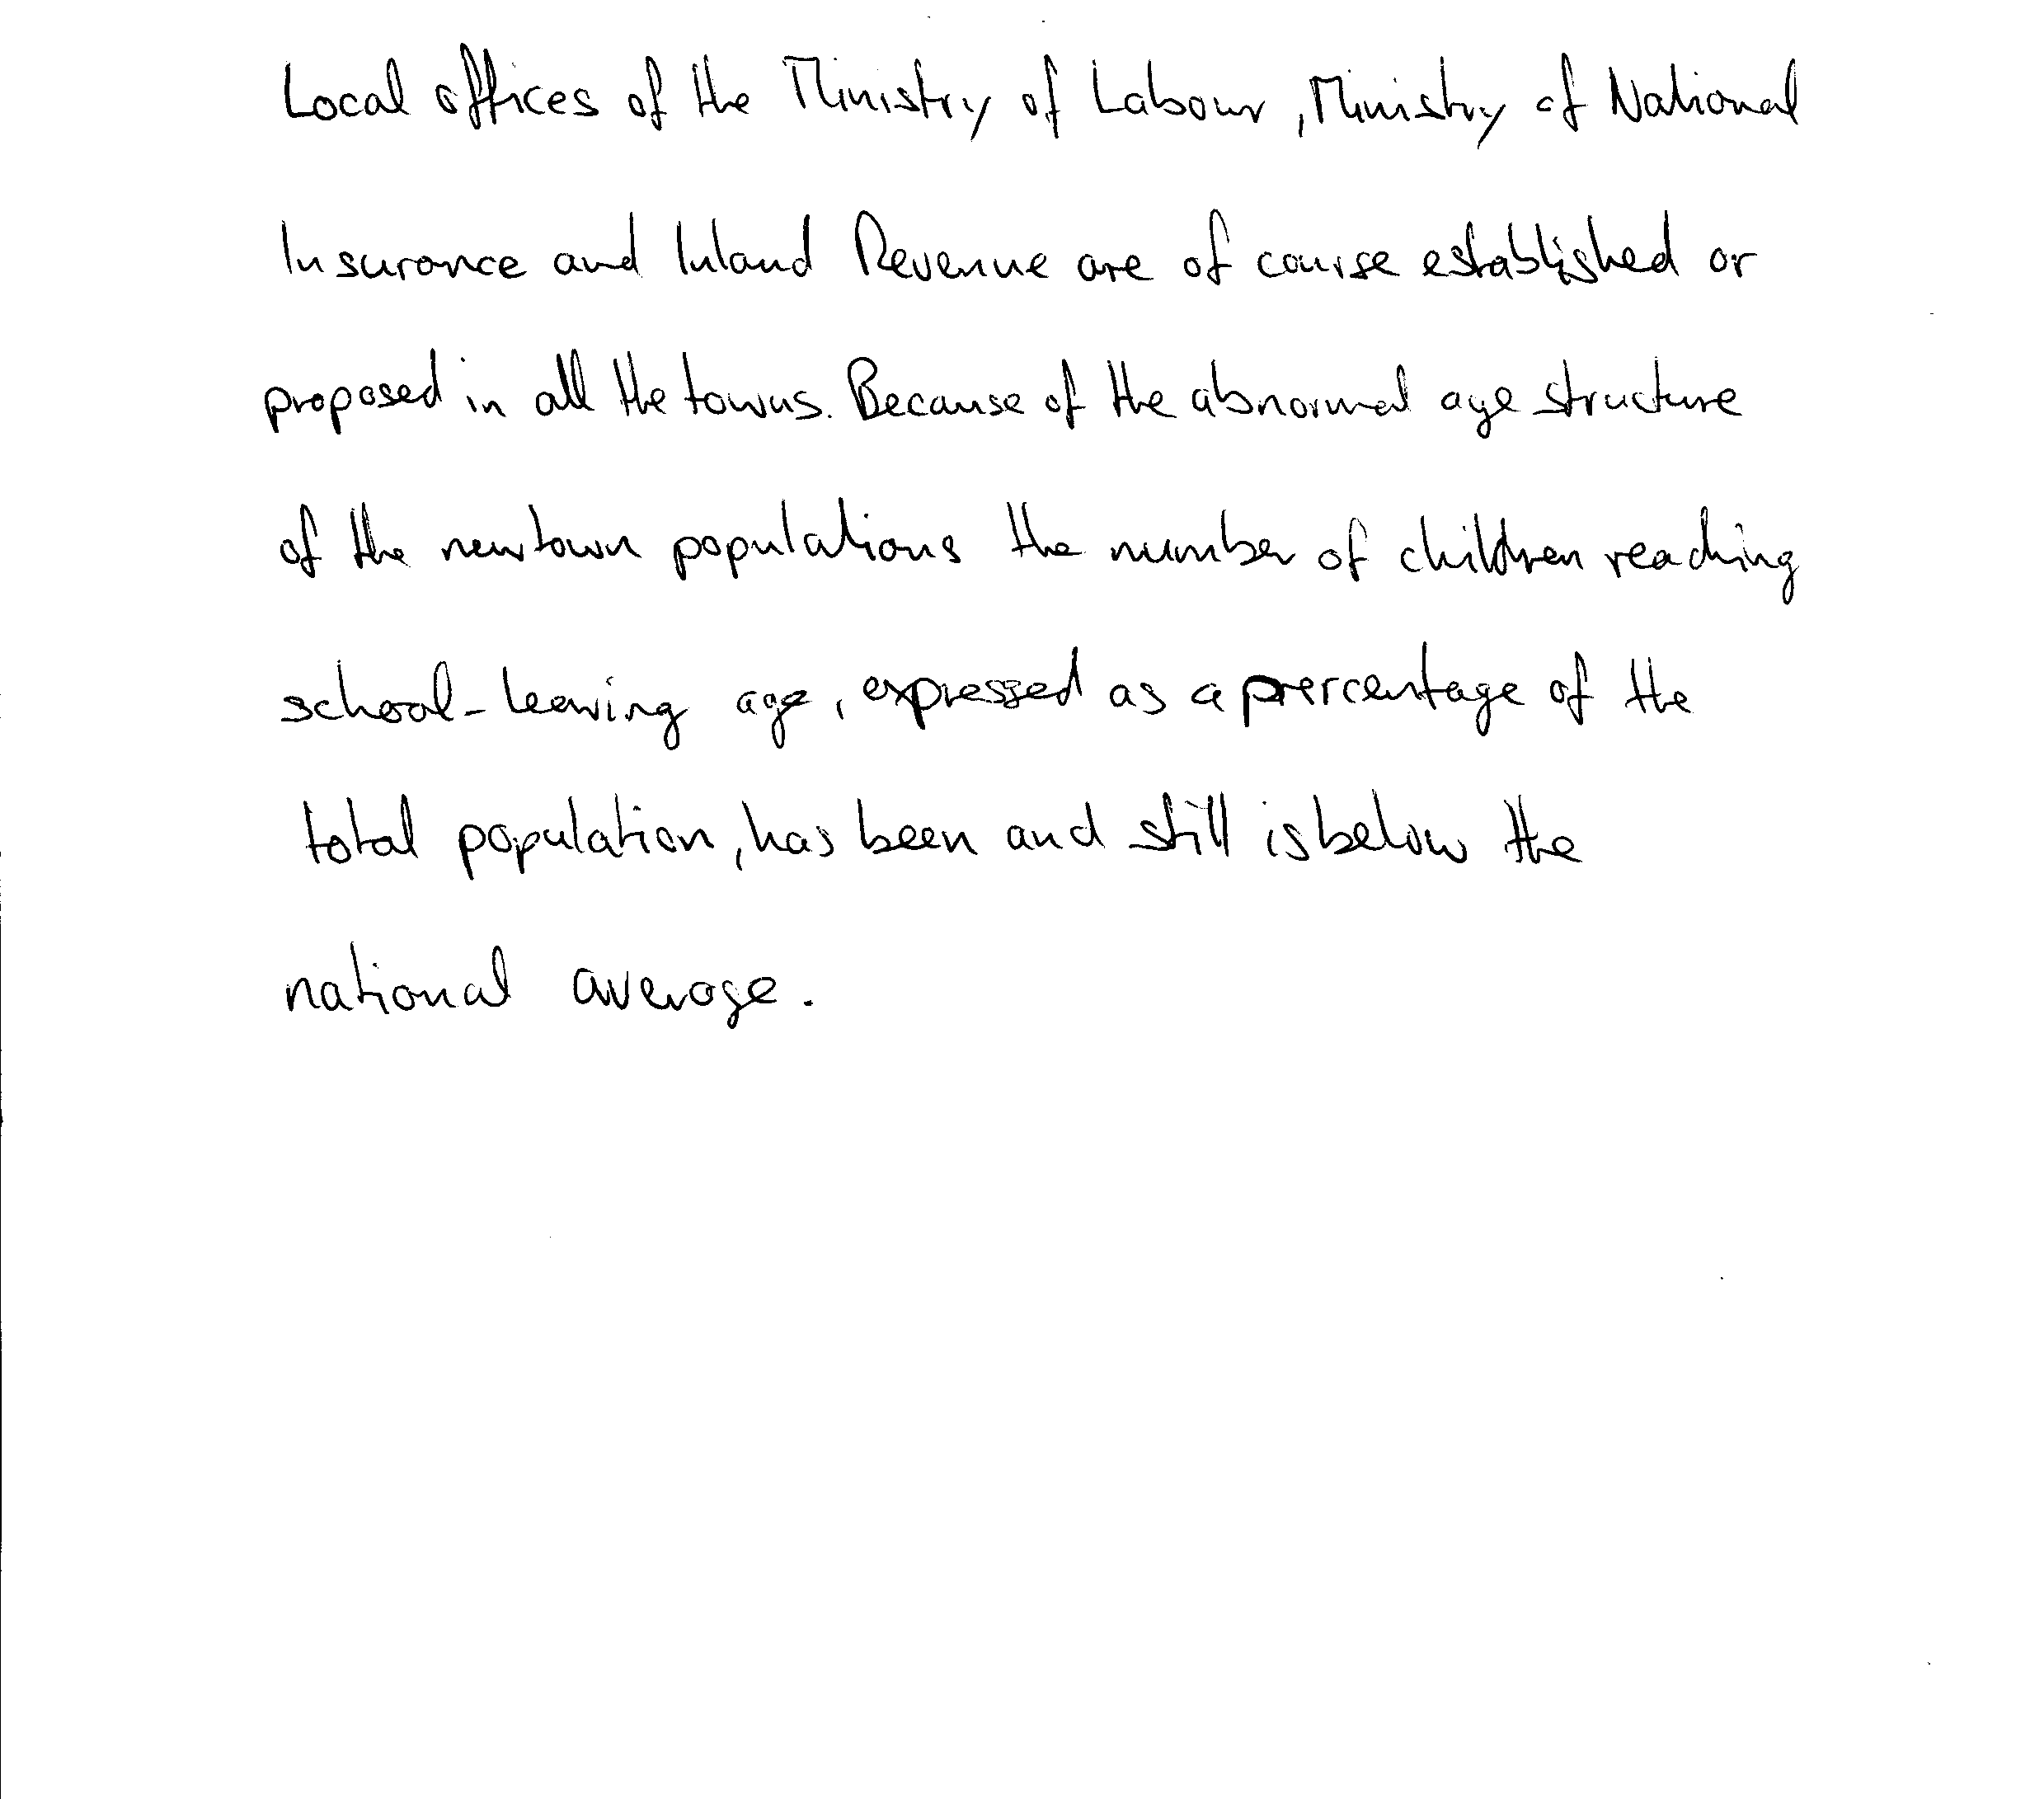 Local offices of the Ministry of Labour, Ministry of National
Insurance and Inland Revenue are of course established or
proposed in all the towns. Because of the abnormal age structure
of the new town populations the number of children reaching
school-leaving age, expressed as a prercentage of the
total population, has been and still is below the
national average.